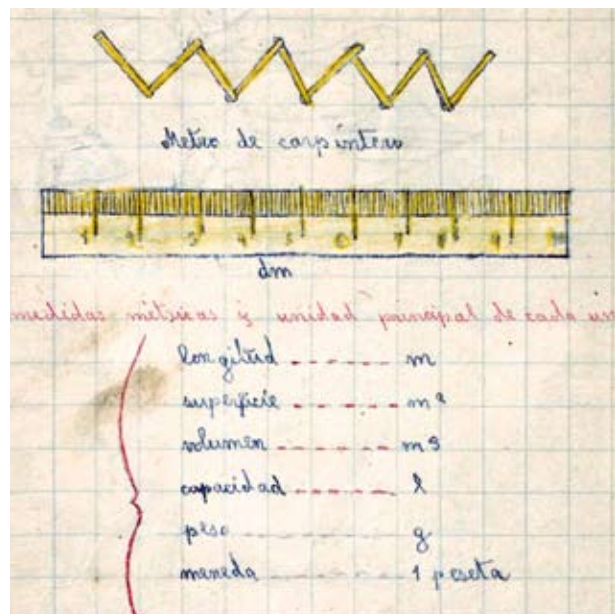 Metro de carpintero
1 2 3 4 5 6 7 8 9
dm
medidas métricas y unidad principal de cada un
longitud ------ m
superficie ------ m²
volumen ------ m³
capacidad ------ l
peso ------ g
moneda ------ 1 peseta